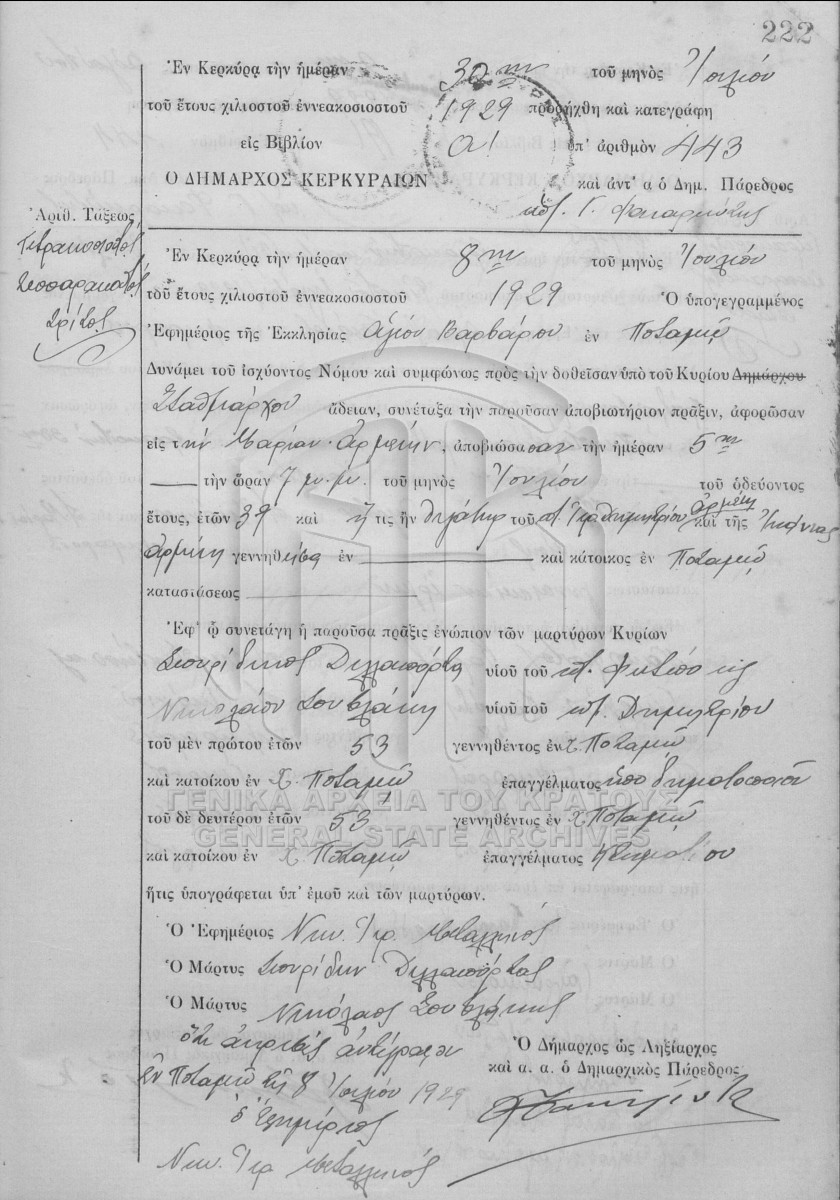 222
Ἐν Κερκύρᾳ τὴν ἡμέραν 30 ην τοῦ μηνὸς Ἰουλίου
τοῦ ἔτους χιλιοστοῦ ἐννεακοσιοστοῦ 1929 προσήχθη καὶ κατεγράφη
εἰς Βιβλίον α! ὑπ' ἀριθμὸν 443
Ο ΔΗΜΑΡΧΟΣ ΚΕΡΚΥΡΑΙΩΝ καὶ ἀντ' α ὁ Δημ. Πάρεδρος
Ἀριθ. Τάξεως
Τετρακοσιοστὸς
Τεσσαρακοστὸς
Τρίτος
Ἐν Κερκύρᾳ τὴν ἡμέραν 8 ην τοῦ μηνὸς Ἰουλίου
τοῦ ἔτους χιλιοστοῦ ἐννεακοσιοστοῦ 1929 Ὁ ὑπογεγραμμένος
Ἐφημέριος τῆς Ἐκκλησίας Ἁγίου Βαρβάρου ἐν Ποταμῷ
Δυνάμει τοῦ ἰσχύοντος Νόμου καὶ συμφώνως πρὸς τὴν δοθεῖσαν ὑπὸ τοῦ Κυρίου Δημάρχου
Σταθμάρχου ἄδειαν, συνέταξα τὴν παροῦσαν ἀποβιωτήριον πρᾶξιν, ἀφορῶσαν
εἰς τὴν Μαρίαν Ἀρμένη, ἀποβιώσασαν τὴν ἡμέραν 5 ην
τὴν ὥραν 7 μ.μ. τοῦ μηνὸς Ἰουλίου τοῦ ὁδεύοντος
ἔτους, ἐτῶν 39 καὶ ἥτις ἦν θυγάτηρ τοῦ Ἀρμένη καὶ τῆς
Ἀρμένη γεννηθεῖσα ἐν καὶ κάτοικος ἐν Ποταμῷ
καταστάσεως
Ἐφ' ᾧ συνετάγη ἡ παροῦσα πρᾶξις ἐνώπιον τῶν μαρτύρων Κυρίων
Σπυρίδωνος Δελλαπόρτα υἱοῦ τοῦ
Νικολάου Σουβλάκη υἱοῦ τοῦ ποτ. Δημητρίου
τοῦ μὲν πρώτου ἐτῶν 53 γεννηθέντος ἐν χ. Ποταμῷ
καὶ κατοίκου ἐν χ. Ποταμῷ ἐπαγγέλματος ὑποδηματοποιοῦ
τοῦ δὲ δευτέρου ἐτῶν 53 γεννηθέντος ἐν χ. Ποταμῷ
καὶ κατοίκου ἐν χ. Ποταμῷ ἐπαγγέλματος κτηματίου
ΓΕΝΙΚΑ ΑΡΧΕΙΑ ΤΟΥ ΚΡΑΤΟΥΣ
GENERAL STATE ARCHIVES
ἥτις ὑπογράφεται ὑπ' ἐμοῦ καὶ τῶν μαρτύρων.
Ὁ Ἐφημέριος Νικ. Ἱερ. Μεταλληνός
Ὁ Μάρτυς Σπυρίδων Δελλαπόρτας
Ὁ Μάρτυς Νικόλαος Σουβλάκης
Ὅτι ἀκριβὲς ἀντίγραφον
Ἐν Ποταμῷ τῇ 8 Ἰουλίου 1929
ὁ Ἐφημέριος
Νικ. Ἱερ. Μεταλληνός
Ὁ Δήμαρχος ὡς Ληξίαρχος
καὶ α. α. ὁ Δημαρχικὸς Πάρεδρος